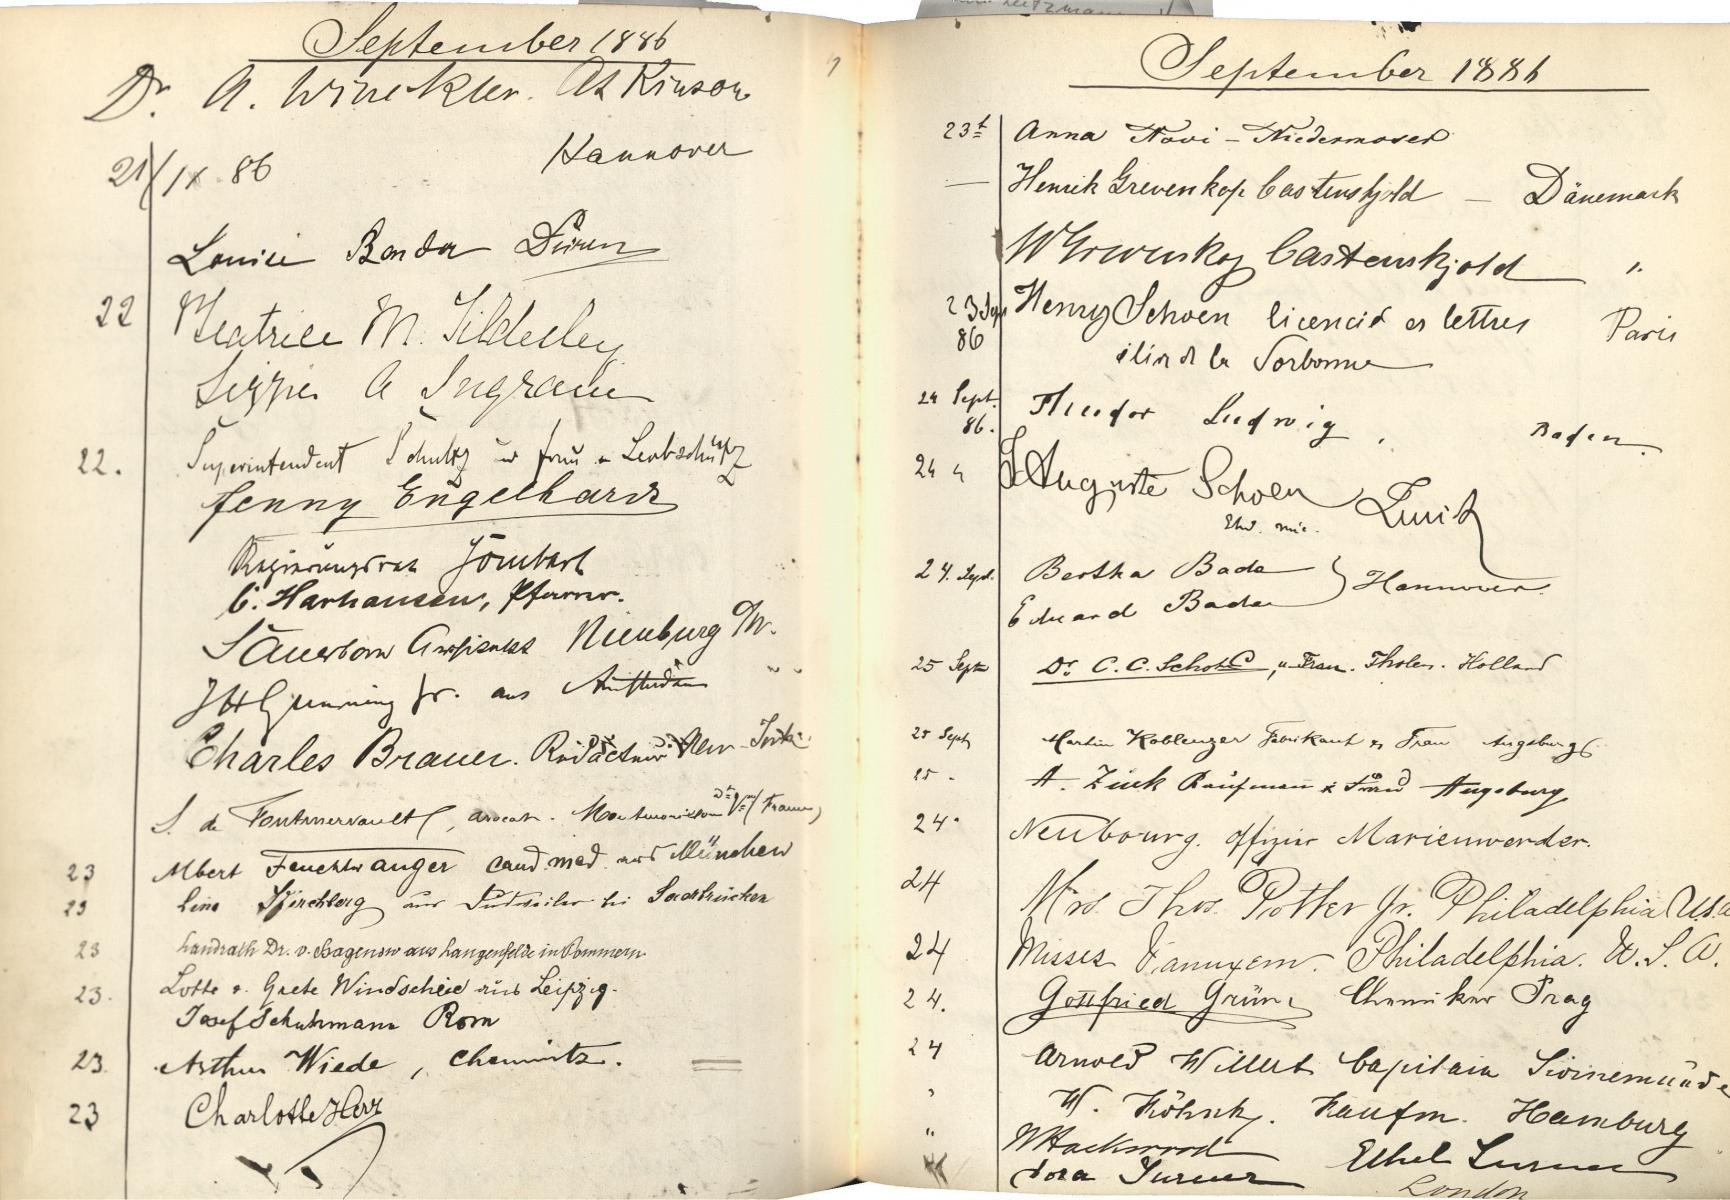 September 1886
Dr. A. Winckler. Atkinson
Hannover
21/IX 86
Louise Bender Düren
22 Beatrice M. Tildesley
Lizzie A Ingram
22. Superintendent Schultz u Frau Leobschütz
Jenny Engelhard
Regierungsrat Jombart
C. Harhausen, Pfarrer.
Sauerborn Nienburg
JH Gunning Jr. aus Amsterdam
Charles Brauer. Redacteur New-York
S. de avocat.
23 Albert Feuchtwanger cand med. aus München
23 Lina Kirchberg aus bei Saarbrücken
23 Landrath Dr. v. Hagenow aus Langenfelde in Pommern
23. Lotte u. Grete Windscheid aus Leipzig.
Josef Schuhmann Rom
23 Arthur Wiede, Chemnitz.
23 Charlotte Herz
September 1886
23t Anna Novi - Niedermoser
— Henrik Grevenkop Castenskjold — Dänemark
W Grevenkop Castenskjold "
23 Sept 86 Henry Schoen licencié es lettres Paris
de la Sorbonne
24 Sept. 86. Theodor Ludwig, Baden.
24 " Auguste Schoen
24. Sept. Bertha Bade } Hannover.
Eduard Bade
25 Sept Dr. C. C. u. Frau. Tholen. Holland
25 Sept Martin Koblenzer Fabrikant u Frau Augsburg
25 - A. Zink Kaufmann & Frau Augsburg
24. Neubourg. Offizier Marienwerder.
24 Mrs. Thos. Potter Jr. Philadelphia U.S.A
24 Misses Vanuxem. Philadelphia. U. S. A.
24. Gottfried Grün Chemiker Prag
24 Arnold Willert Capitain Swinemünde
" W. Kaufm. Hamburg
" W Hackwood
Dora Turner Ethel Turner
London